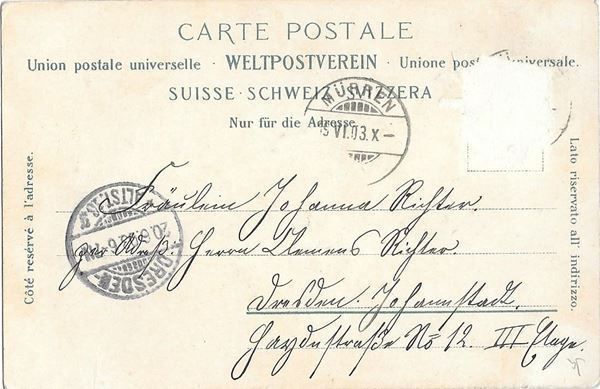 CARTE POSTALE
Union postale universelle · WELTPOSTVEREIN · Unione postale universale.
SUISSE · SCHWEIZ · SVIZZERA
Nur für die Adresse.
MÜRREN
VI.03.X–
Côté reservé à l'adresse.
Lato riservato all' indirizzo.
DRESDEN
Fräulein Johanna Richter.
per Adreß: Herrn Clemens Richter.
Dresden. Johannstadt.
Haydnstraße No 12 III Etage.